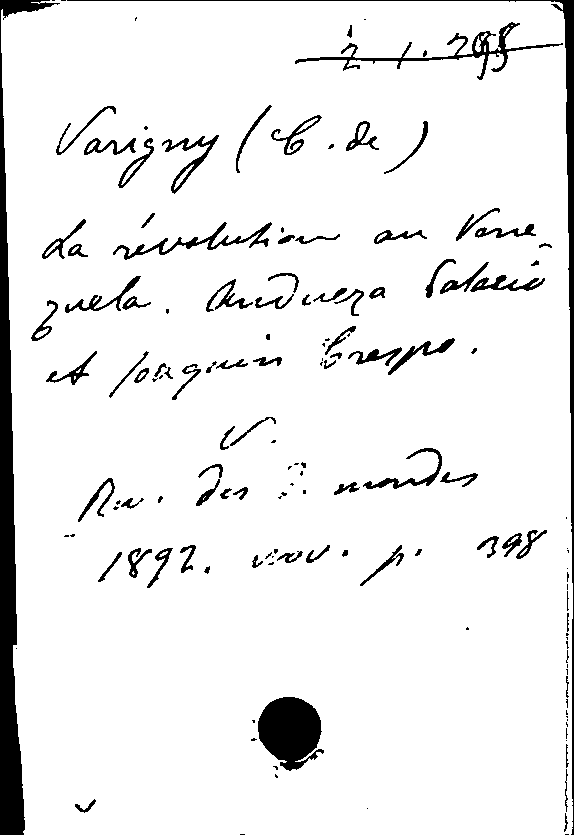 Varigny (C. de)
La révolution au Vene-
zuela. Andueza Palacio
et Joaquin Crespo.
V.
Rev. des 2. mondes
1892. nov. p. 398